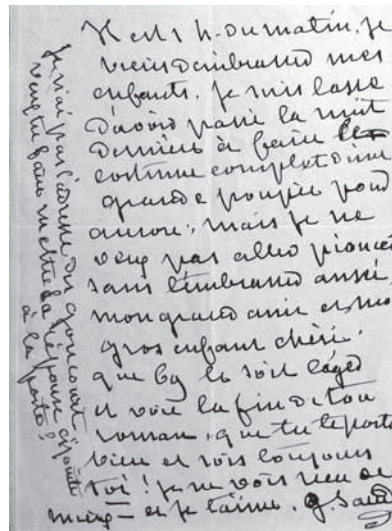 Il est 5 h. du matin. Je
viens d'embrasser mes
enfants. Je suis lasse
d'avoir passé la nuit
dernière à faire le
costume complet d'une
grande poupée pour
aurore; mais je ne
veux pas aller pioncer
sans t'embrasser aussi,
mon grand ami et mon
gros enfant chéri.
que 69 te soit léger
et voie la fin de ton
roman, que tu te portes
bien et sois toujours
toi! je ne vois rien de
mieux – et je t'aime. G. Sand
Je n'ai pas l'adresse des goncourt.
veux tu faire mettre la réponse ci jointe
à la poste?